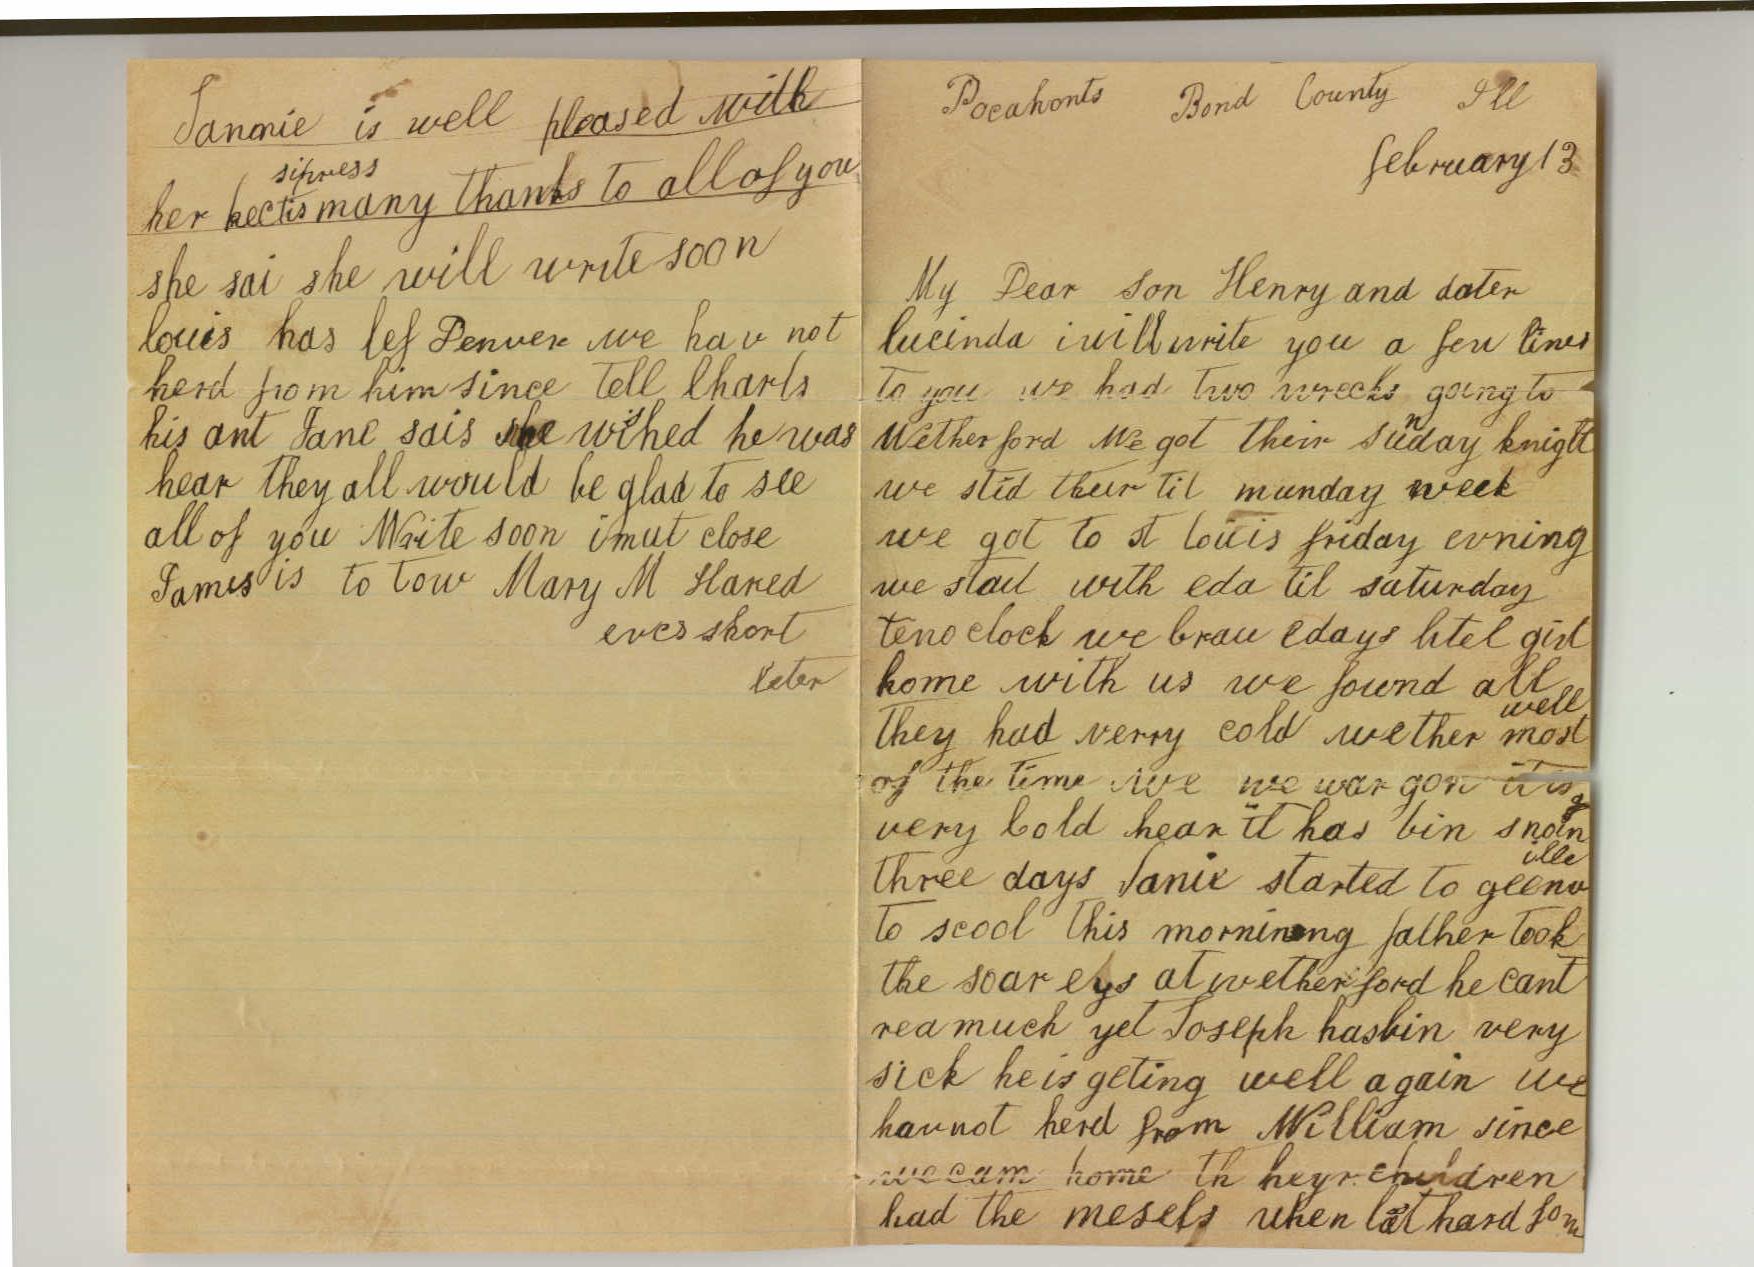 Pocahonts Bond County Ill
february 13
My Dear son Henry and dater
lucinda i will write you a few lines
to you we had two wrecks going to
Wetherford We got their sunday knight
we stid their til munday week
we got to st louis friday evning
we staid with eda til saturday
ten oclock we brau edays litel girl
home with us we found all
well
they had verry cold wether most
of the time we we war gon it is
very Cold hear it has bin snoing
three days Janie started to geenville
to scool this morning father took
the soar eys at wetherford he cant
rea much yet Joseph hasbin very
sick he is geting well again we
hav not herd from William since
we cam home th heyr children
had the mesels when last hard fom
Janmie is well pleased with
sipress
her many thanks to all of you
she sai she will write soon
louis has lef Denver we hav not
herd from him since tell Charls
his ant Jane sais she wished he was
hear they all would be glad to see
all of you Write soon i mut close
James is to tow Mary M Hared
eves short
leter